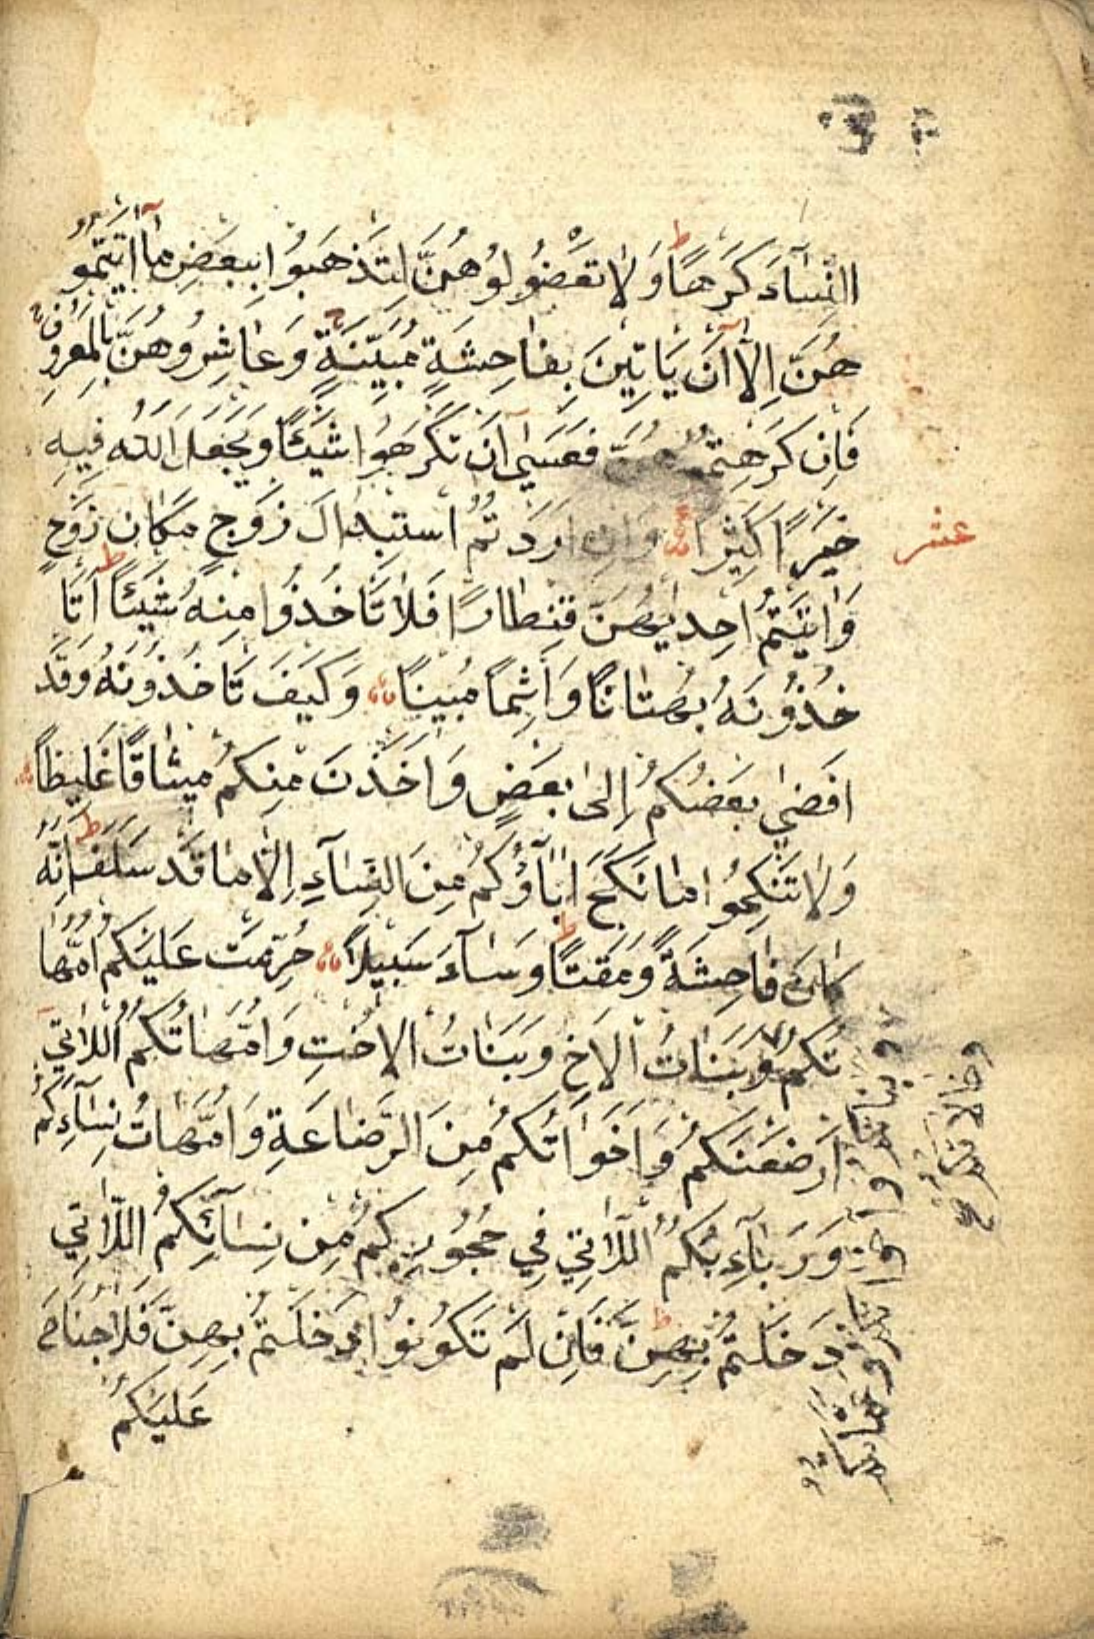 النِّسَآءَ كَرْهًا ط وَلَا تَعْضُلُوهُنَّ لِتَذْهَبُوا بِبَعْضِ مَآ اٰتَيْتُمُو
هُنَّ اِلَّآ اَنْ يَاْتِينَ بِفَاحِشَةٍ مُبَيِّنَةٍ ج وَعَاشِرُوهُنَّ بِالْمَعْرُوفِ ج
فَاِنْ كَرِهْتُمُوهُنَّ فَعَسٰىٓ اَنْ تَكْرَهُوا شَيْئًا وَيَجْعَلَ اللّٰهُ فِيهِ
خَيْرًا كَثِيرًا وَاِنْ اَرَدْتُمُ اسْتِبْدَالَ زَوْجٍ مَكَانَ زَوْجٍ
عشر
وَاٰتَيْتُمْ اِحْدٰيهُنَّ قِنْطَارًا فَلَا تَاْخُذُوا مِنْهُ شَيْئًا ط اَتَاْ
خُذُونَهُ بُهْتَانًا وَاِثْمًا مُبِينًا وَكَيْفَ تَاْخُذُونَهُ وَقَدْ
اَفْضٰى بَعْضُكُمْ اِلٰى بَعْضٍ وَاَخَذْنَ مِنْكُمْ مِيثَاقًا غَلِيظًا
وَلَا تَنْكِحُوا مَا نَكَحَ اٰبَآؤُكُمْ مِنَ النِّسَآءِ اِلَّا مَا قَدْ سَلَفَ ط اِنَّهُ
كَانَ فَاحِشَةً وَمَقْتًا ط وَسَآءَ سَبِيلًا حُرِّمَتْ عَلَيْكُمْ اُمَّهَا
تُكُمْ وَبَنَاتُ الْاَخِ وَبَنَاتُ الْاُخْتِ وَاُمَّهَاتُكُمُ اللَّاتِىٓ
اَرْضَعْنَكُمْ وَاَخَوَاتُكُمْ مِنَ الرَّضَاعَةِ وَاُمَّهَاتُ نِسَآءِكُمْ
وَرَبَآءِبُكُمُ اللَّاتِي فِي حُجُورِكُمْ مِنْ نِسَآئِكُمُ اللَّاتِي
دَخَلْتُمْ بِهِنَّ ط فَاِنْ لَمْ تَكُونُوا دَخَلْتُمْ بِهِنَّ فَلَا جُنَاحَ
عَلَيْكُمْ